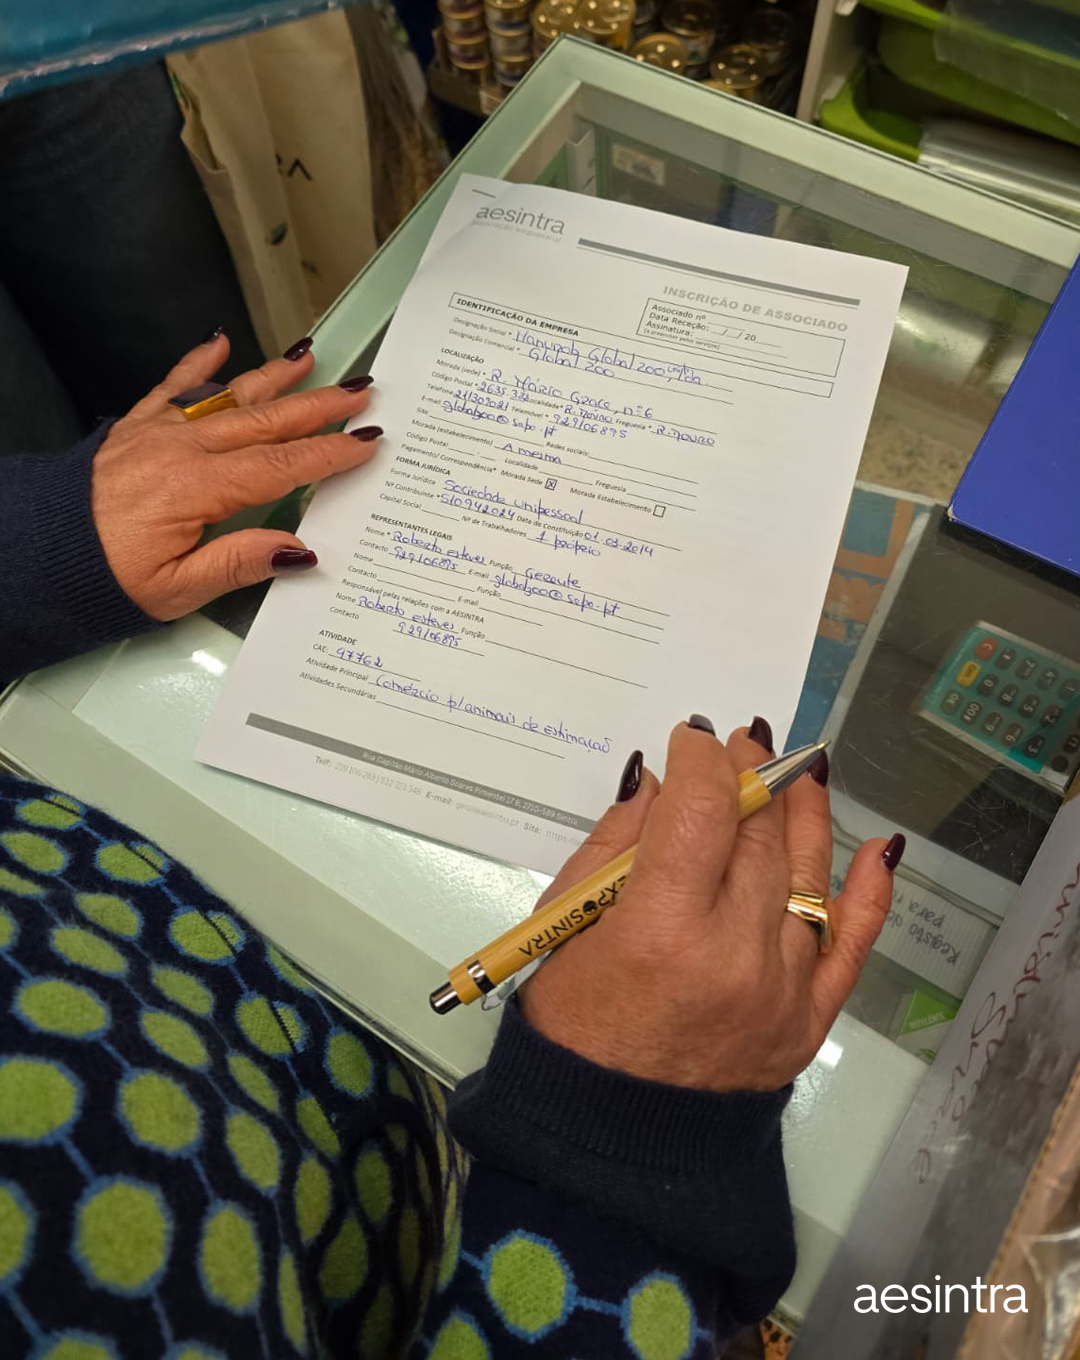 aesintra
associação empresarial
INSCRIÇÃO DE ASSOCIADO
Associado nº
Data Receção: __/__/20__
Assinatura:
(a preencher pelos serviços)
IDENTIFICAÇÃO DA EMPRESA
Designação Social * Global Zoo, Unip. Lda.
Designação Comercial * Global Zoo
LOCALIZAÇÃO
Morada (sede) * R. Mário Graça, nº 6
Código Postal * 2635. Localidade * R. Mouro Freguesia * R. Mouro
Telefone Telemóvel * 929106895
E-mail globalzoo@sapo.pt
Site Redes sociais:
Morada (estabelecimento) A mesma
Código Postal Localidade Freguesia
Pagamento/ Correspondência* Morada Sede X Morada Estabelecimento
FORMA JURÍDICA
Forma Jurídica Sociedade unipessoal
Nº Contribuinte * 510942024 Data de Constituição 01.03.2014
Capital Social Nº de Trabalhadores 1 próprio
REPRESENTANTES LEGAIS
Nome * Roberto esteves Função Gerente
Contacto 929106895 E-mail globalzoo@sapo.pt
Nome Função
Contacto E-mail
Responsável pelas relações com a AESINTRA
Nome Roberto esteves Função
Contacto 929106895
ATIVIDADE
CAE: 47762
Atividade Principal Comércio p/animais de estimação
Atividades Secundárias
Rua Capitão Mário Alberto Soares Pimentel 17 B, 2710-589 Sintra
Telf: E-mail: geral@aesintra.pt Site:
EXPOSINTRA
Registo de
para
aesintra